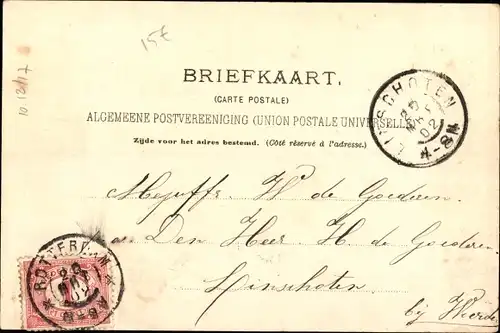 15€
10.12/17
BRIEFKAART.
(CARTE POSTALE)
ALGEMEENE POSTVEREENIGING (UNION POSTALE UNIVERSELLE)
Zijde voor het adres bestemd. (Côté réservé à l'adresse.)
LINSCHOTEN
4-8N
Mejuffr. W de Goederen.
Den Heer H. de Goederen
Linschoten
bij Woerden
ROTTERDAM